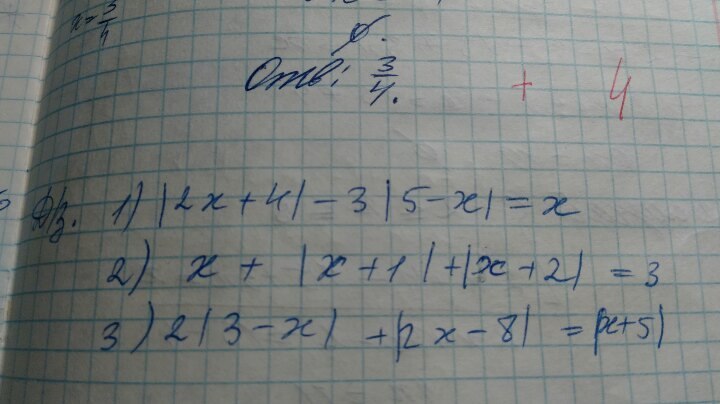 x = 3/4
Ø.
Отв: 3/4.
+ 4
Д/з. 1) |2x+4| - 3|5-x| = x
2) x + |x+1| + |x+2| = 3
3) 2|3-x| + |2x-8| = |x+5|